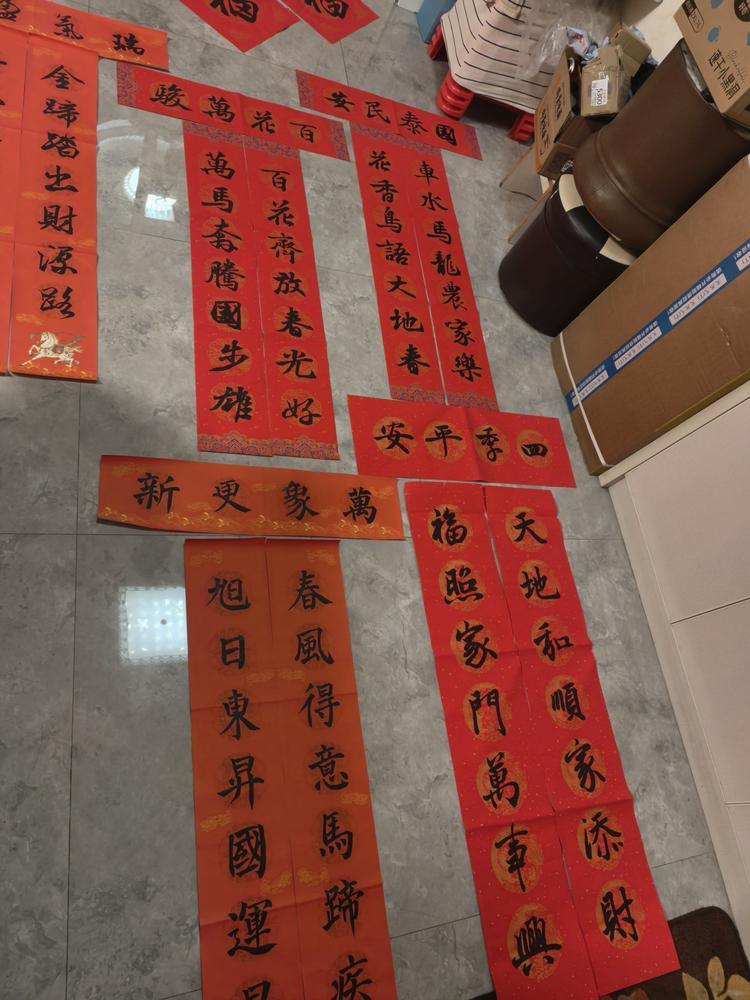 福
福
瑞氣盈
金蹄踏出財源路
百花萬駿
百花齊放春光好
萬馬奔騰國步雄
國泰民安
車水馬龍農家樂
花香鳥語大地春
四季平安
天地和順家添財
福照家門萬事興
萬象更新
春風得意馬蹄疾
旭日東昇國運